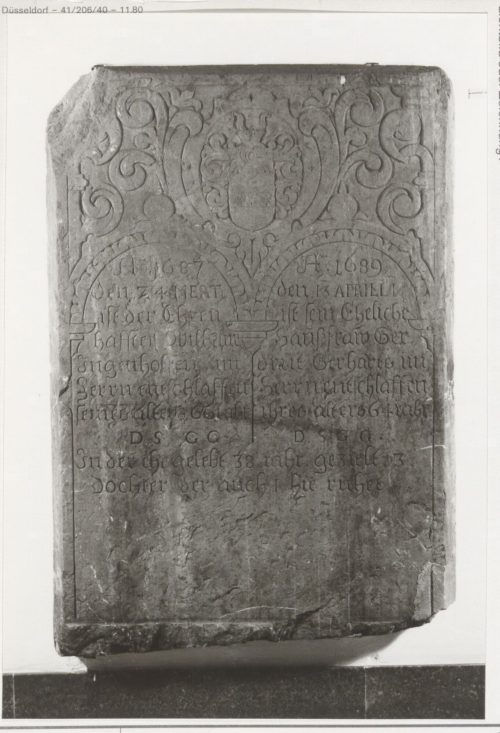 Düsseldorf – 41/206/40 – 11.80
A. 1687
den 24 MERT
ist der Ehren
haften Wilhelm
Ingenhofen im
Herrn entschlaffen
seines alters 66 iahr
D S G G
A. 1689
den 13 APRILL
ist sein Eheliche
Hausfraw Ger
drut Gerharts im
Herrn entschlaffen
ihres alters 64 iahr
D S G G.
In der ehe gelebt 38 iahr gezielt 3
Dochter der auch 1 hie ruhet